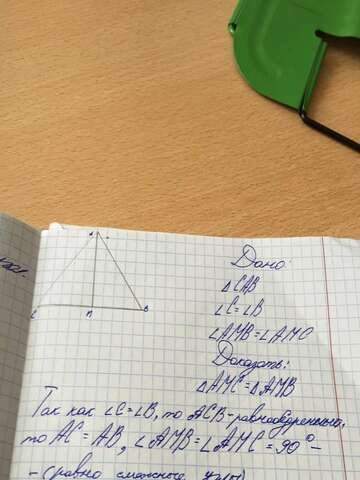 A
C
M
B
Дано:
△CAB
∠C=∠B
∠AMB=∠AMC
Доказать:
△AMC=△AMB
Так как ∠C=∠B, то ACB-равнобедренный,
то AC=AB, ∠AMB=∠AMC=90°-
-(равно смежные углы)